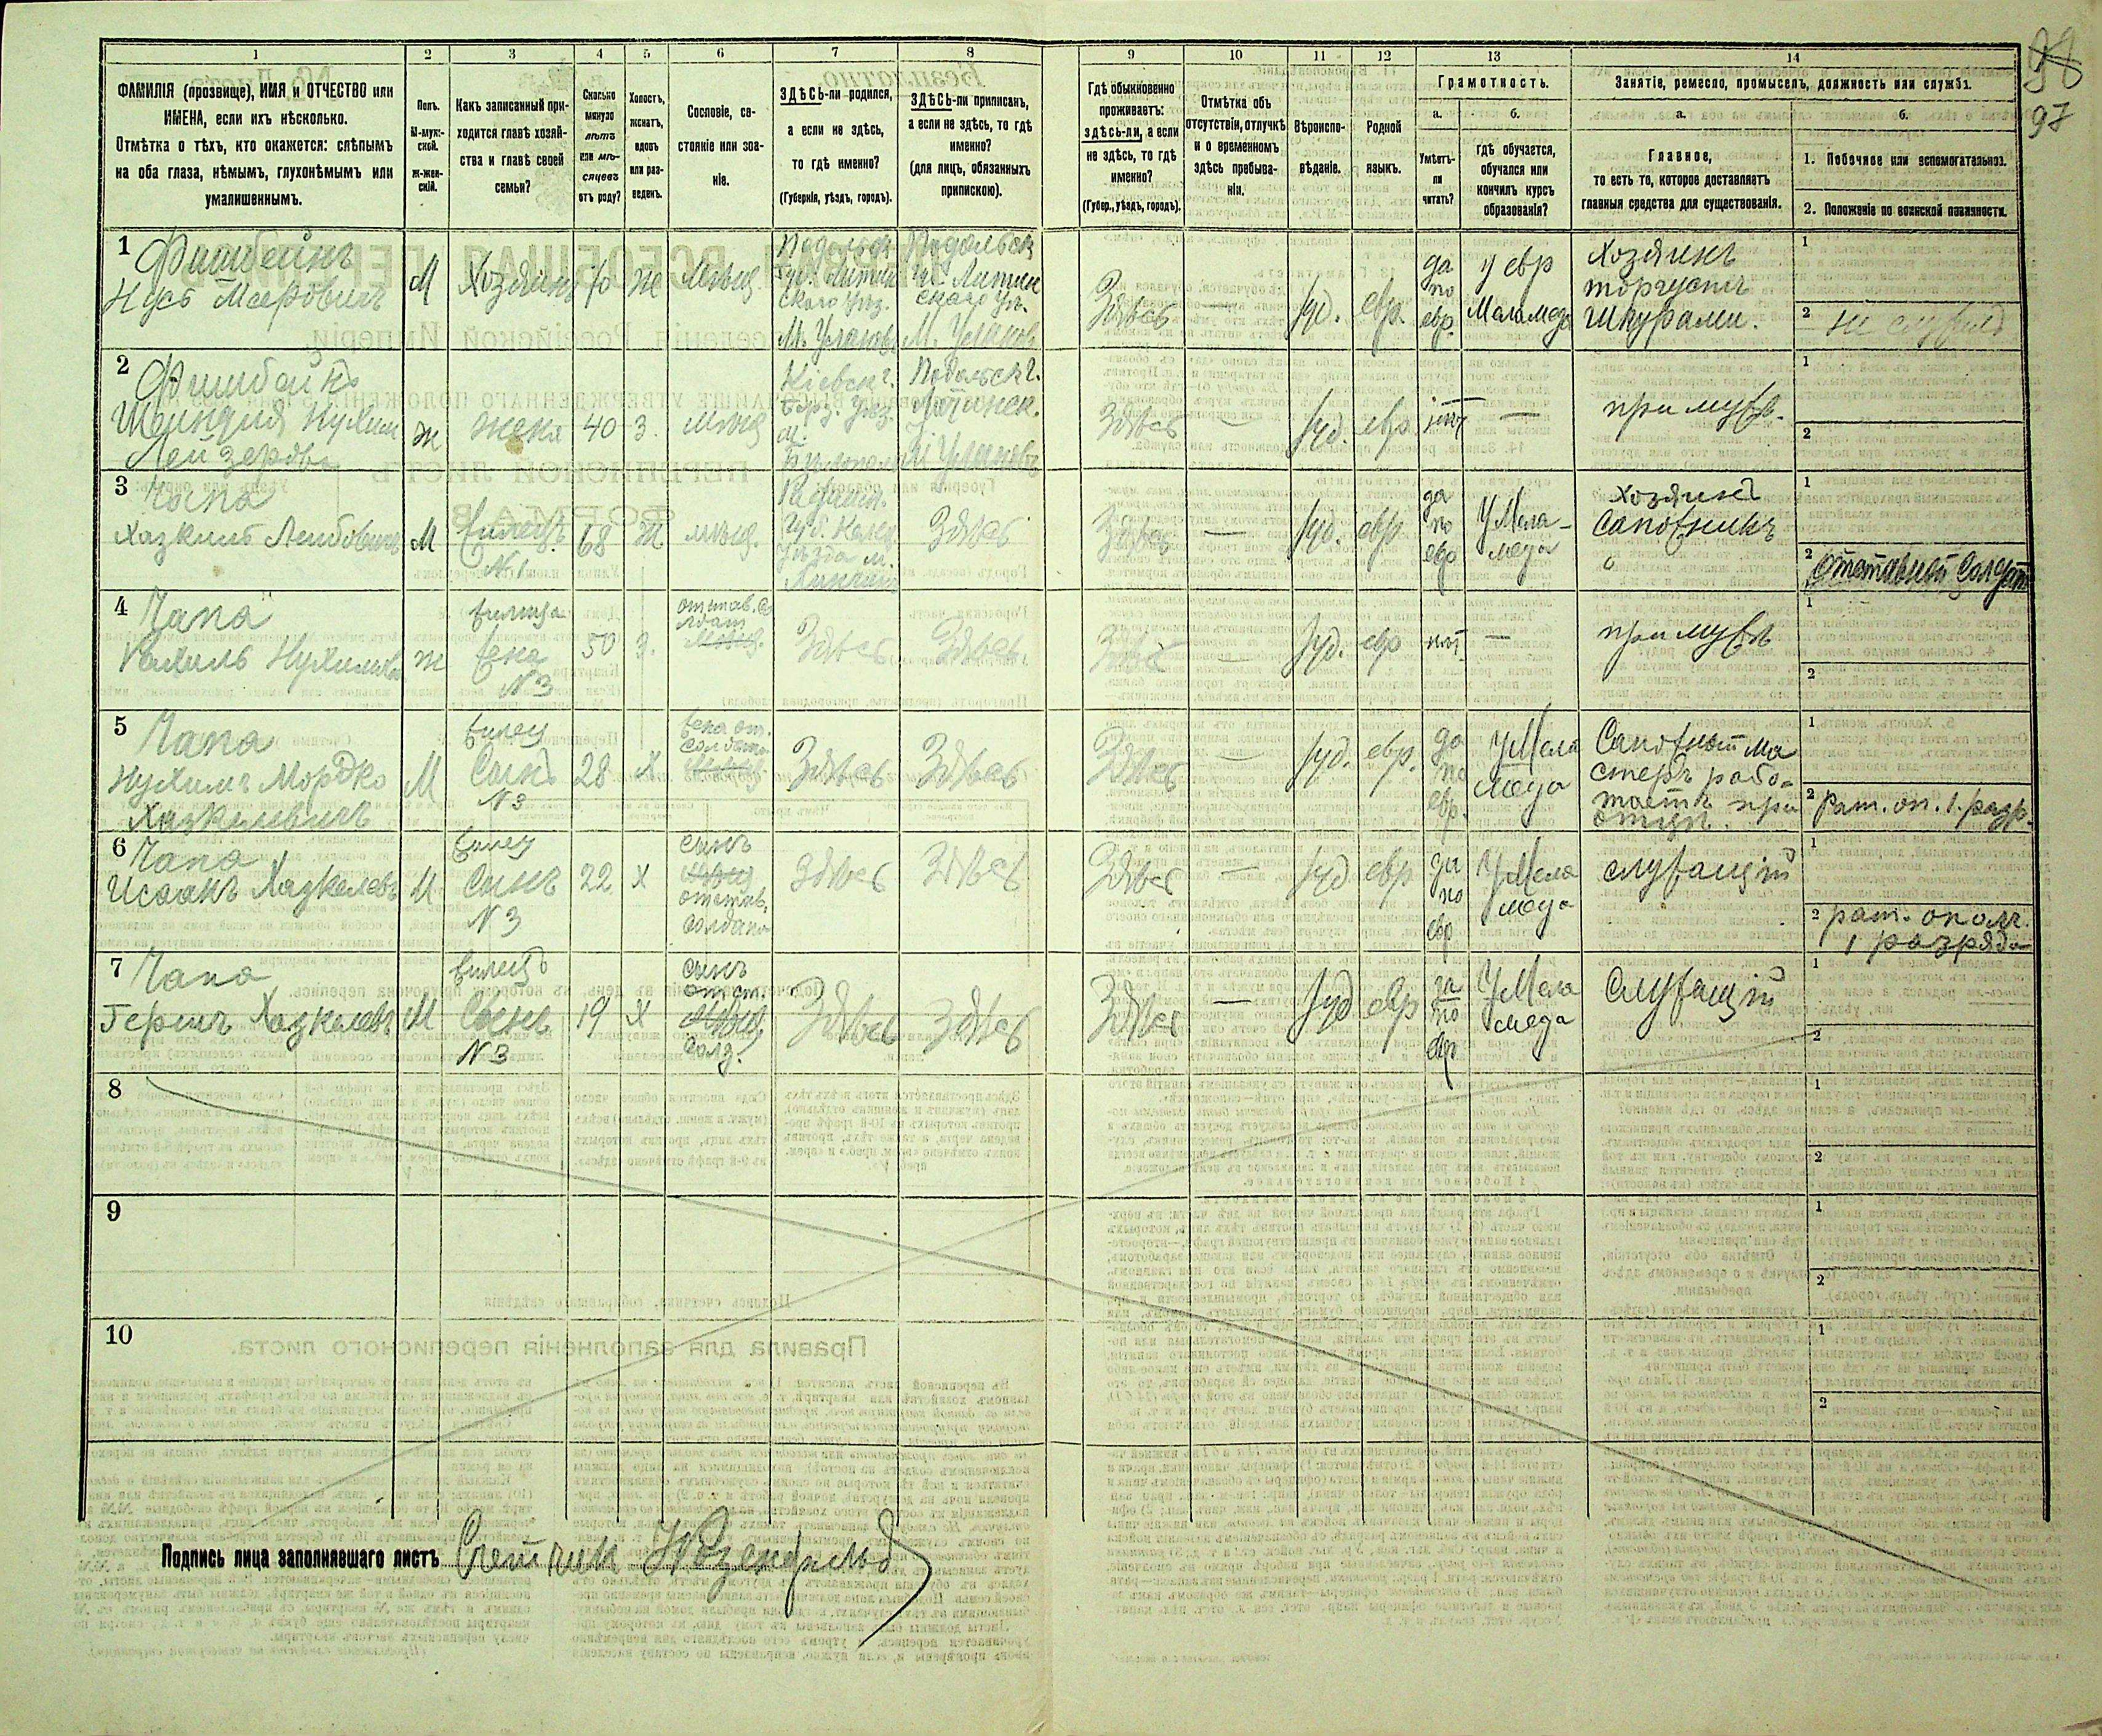 98
97
1
2
3
4
5
6
7
8
9
10
11
12
13
14
ФАМИЛІЯ (прозвище), ИМЯ и ОТЧЕСТВО или
ИМЕНА, если ихъ нѣсколько.
Отмѣтка о тѣхъ, кто окажется: слѣпымъ
на оба глаза, нѣмымъ, глухонѣмымъ или
умалишеннымъ.
Полъ.
М-муж-
ской.
ж-жен-
скій.
Какъ записанный при-
ходится главѣ хозяй-
ства и главѣ своей
семьи?
Сколько
минуло
лѣтъ
или мѣ-
сяцевъ
отъ роду?
Холостъ,
женатъ,
вдовъ
или раз-
веденъ.
Сословіе, со-
стояніе или зва-
ніе.
ЗДѢСЬ-ли родился,
а если не здѣсь,
то гдѣ именно?
(Губернія, уѣздъ, городъ).
ЗДѢСЬ-ли приписанъ,
а если не здѣсь, то гдѣ
именно?
(для лицъ, обязанныхъ
припискою).
Гдѣ обыкновенно
проживаетъ:
здѣсь-ли, а если
не здѣсь, то гдѣ
именно?
(Губер., уѣздъ, городъ).
Отмѣтка объ
отсутствіи, отлучкѣ
и о временномъ
здѣсь пребыва-
ніи.
Вѣроиспо-
вѣданіе.
Родной
языкъ.
Грамотность.
а.
Умѣетъ-
ли
читать?
б.
гдѣ обучается,
обучался или
кончилъ курсъ
образованія?
Занятіе, ремесло, промыселъ, должность или служба.
а.
Главное,
то есть то, которое доставляетъ
главныя средства для существованія.
б.
1. Побочное или вспомогательное.
2. Положеніе по воинской повинности.
1
Фишбейнъ
Нусъ Меировичъ
М
Хозяинъ
70
Ж
Мѣщ
Подольск
Губ. Литин
скаго Уѣз.
М. Улановъ
Подольск
Г. Литин
скаго Уѣ.
М. Улановъ
Здѣсь
—
Іуд.
евр.
да
по
евр.
у евр
Меламеда
Хозяинъ
торгуетъ
Шкурами.
1
2
не служилъ
2
Фишбейнъ
Шейндля Нухим
Лейзеровна
ж
жена
40
з.
Мѣщ
Кіевск г.
Бер. уѣз.
Подольск г.
Литинск.
М Улановъ
Здѣсь
—
Іуд.
евр
нѣт
—
при мужѣ.
1
2
3
Чапа
Хазкиль Лейбовичъ
М
жилецъ
N 1
68
Ж
мѣщ.
Губ.
Уѣзда м.
Здѣсь
Здѣсь
—
Іуд.
евр
да
по
евр
У Мела-
меда
Хозяинъ
Сапожникъ
1
2
Отставный Солдатъ
4
Чапа
Рахиль Нухимовна
ж
жилица
жена
N 3
50
з.
отстав. со
лдат
Здѣсь
Здѣсь
Здѣсь
—
Іуд.
евр
нѣт.
—
при мужѣ
1
2
5
Чапа
Нухимъ Мордко
Хазкелевичъ
М
жилец
Сынъ
N 3
28
х
Здѣсь
Здѣсь
Здѣсь
—
Іуд.
евр.
да
по
евр.
У Мела
меда
Сапожный Ма
стеръ рабо-
таетъ при
отцѣ.
1
2
Рат. оп. 1. разр.
6
Чапа
Исаакъ Хазкелевъ
М
жилец
Сынъ
N 3
22
х
сынъ
отстав.
солдата
Здѣсь
Здѣсь
Здѣсь
—
Іуд
евр
да
по
евр
У Мела
меда
служащій
1
2
рат. ополч.
1 разряда
7
Чапа
Гершъ Хазкелевъ
М
жилецъ
Сынъ
N 3
19
х
сынъ
отст.
солд.
Здѣсь
Здѣсь
Здѣсь
—
Іуд
евр
да
по
евр
У Мела
меда
Служащій
1
2
8
1
2
9
1
2
10
1
2
Подпись лица заполнявшаго листъ Счетчик